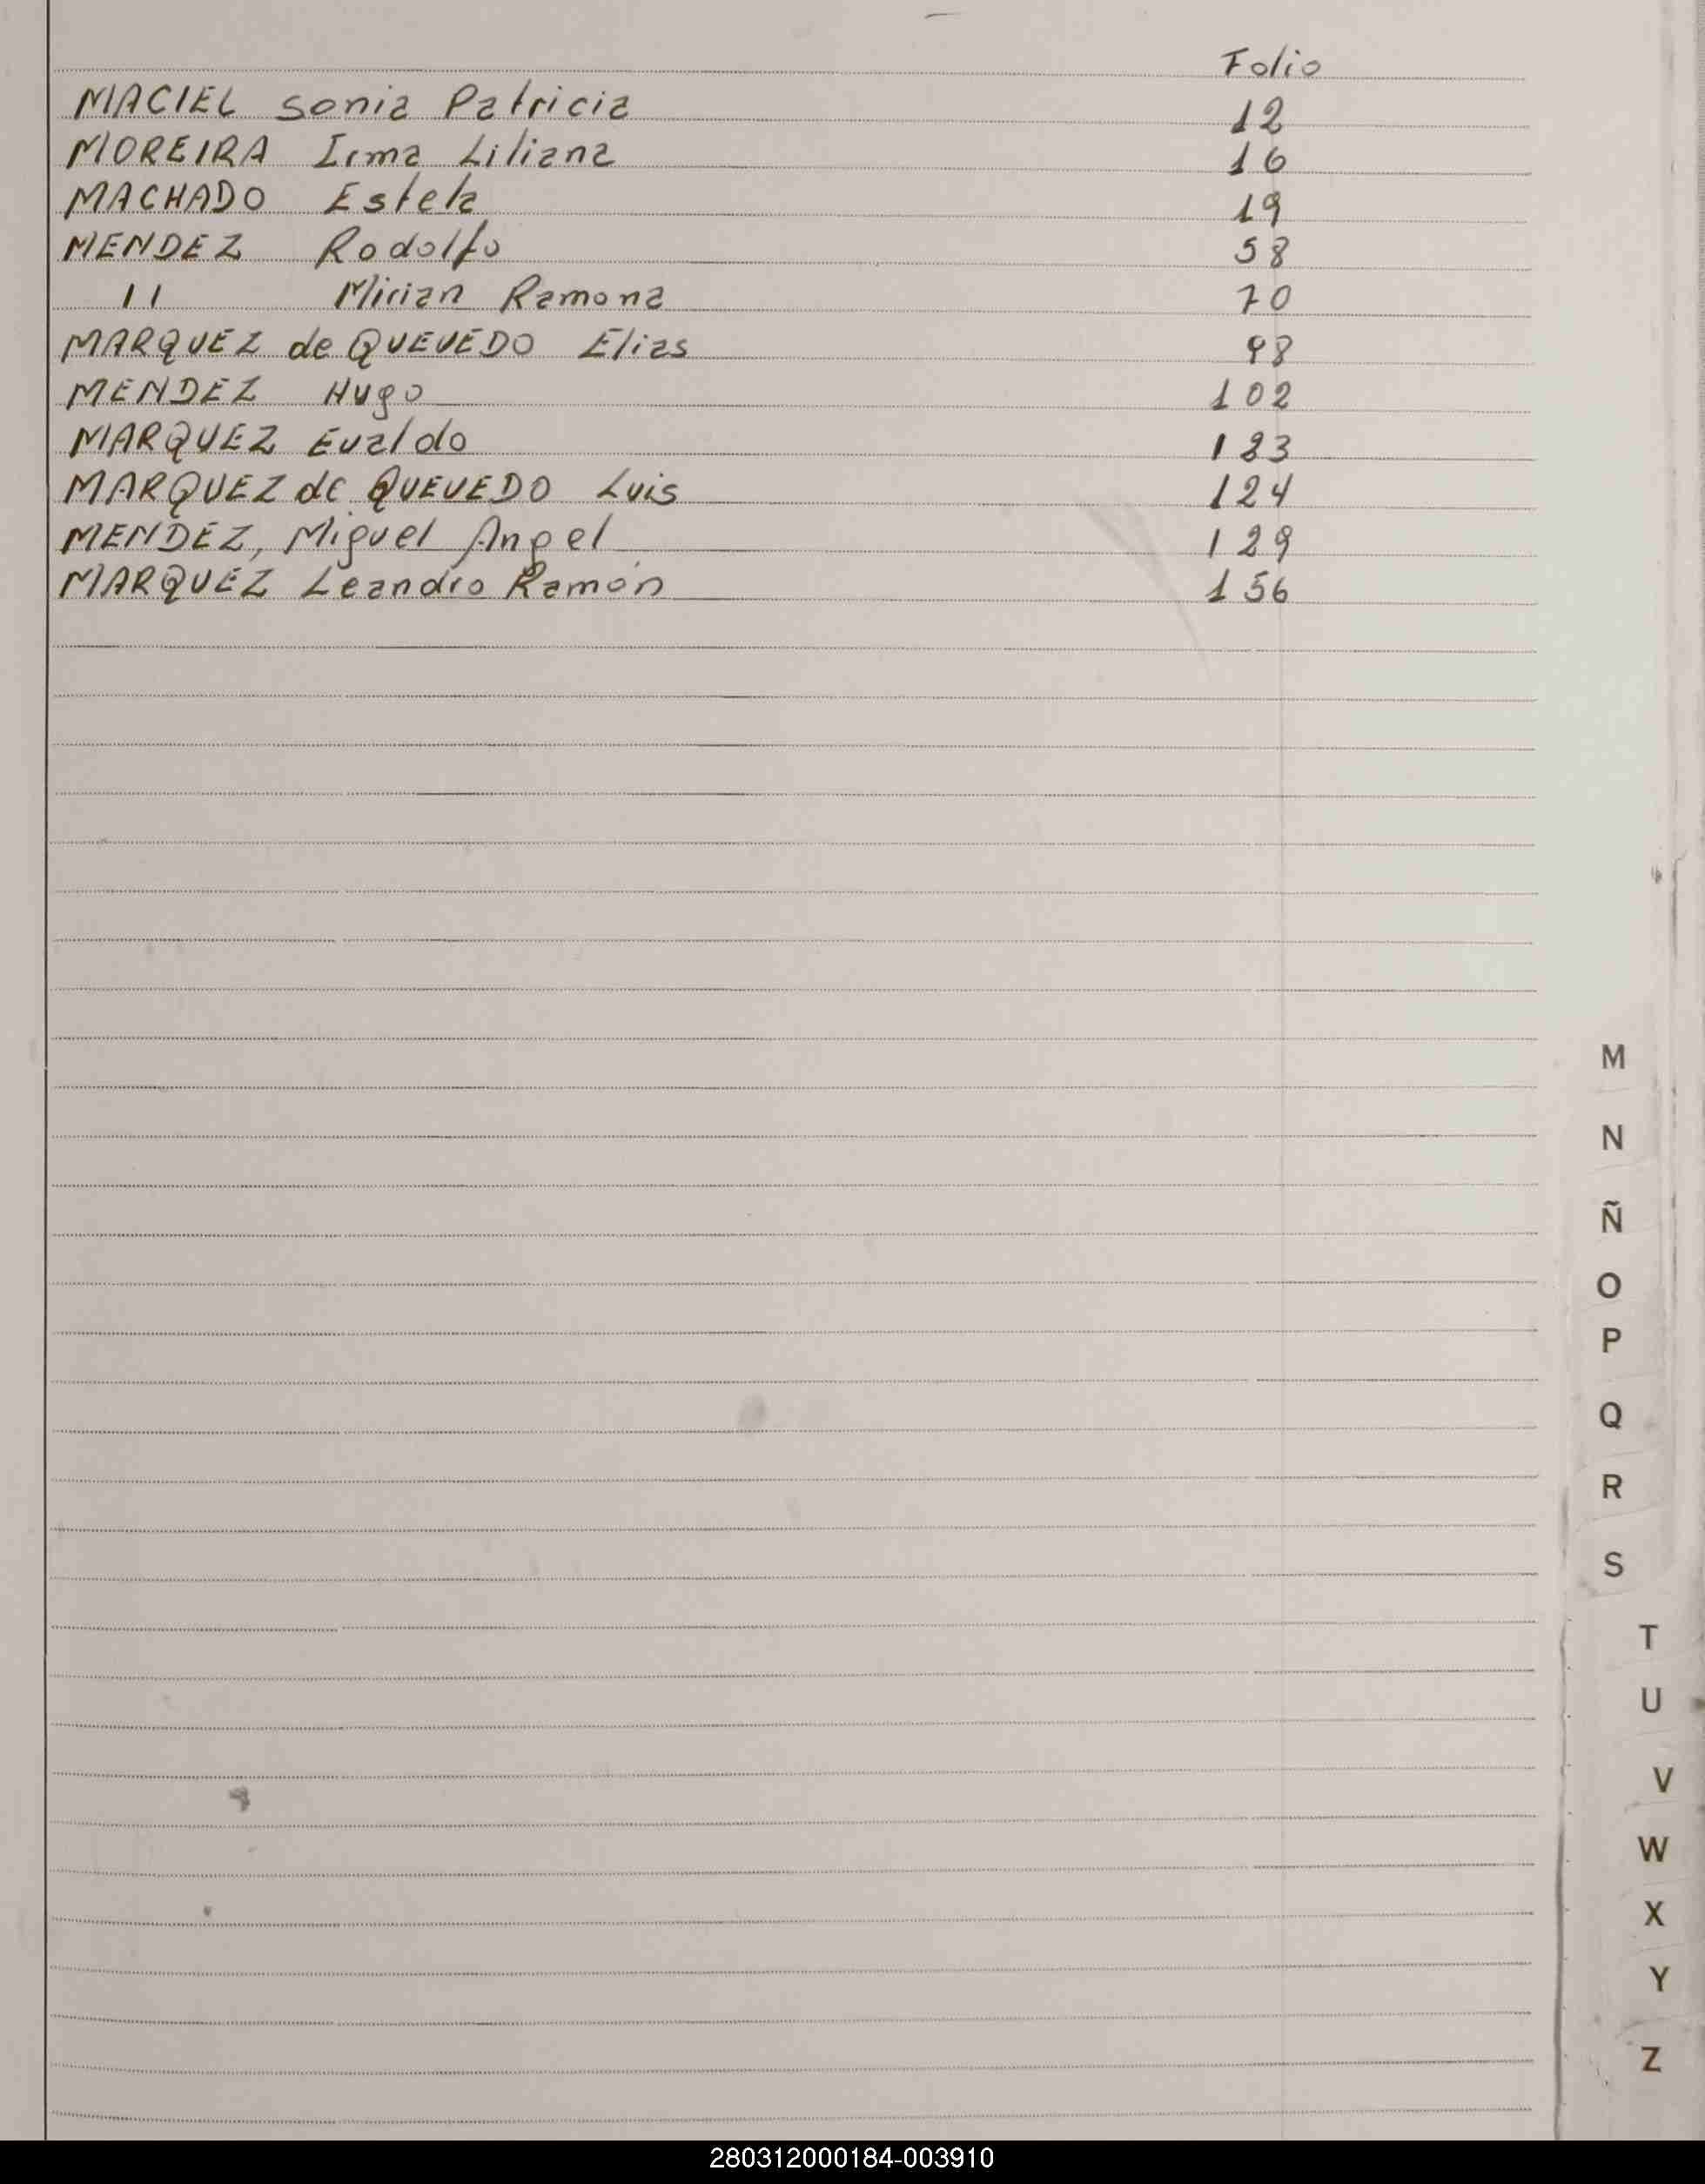 Folio
MACIEL Sonia Patricia 12
MOREIRA Irma Liliana 16
MACHADO Estela 19
MENDEZ Rodolfo 58
11 Mirian Ramona 70
MARQUEZ de QUEVEDO Elias 98
MENDEZ Hugo 102
MARQUEZ Evaldo 123
MARQUEZ de QUEVEDO Luis 124
MENDEZ, Miguel Angel 129
MARQUEZ Leandro Ramón 156
M
N
Ñ
O
P
Q
R
S
T
U
V
W
X
Y
Z
280312000184-003910